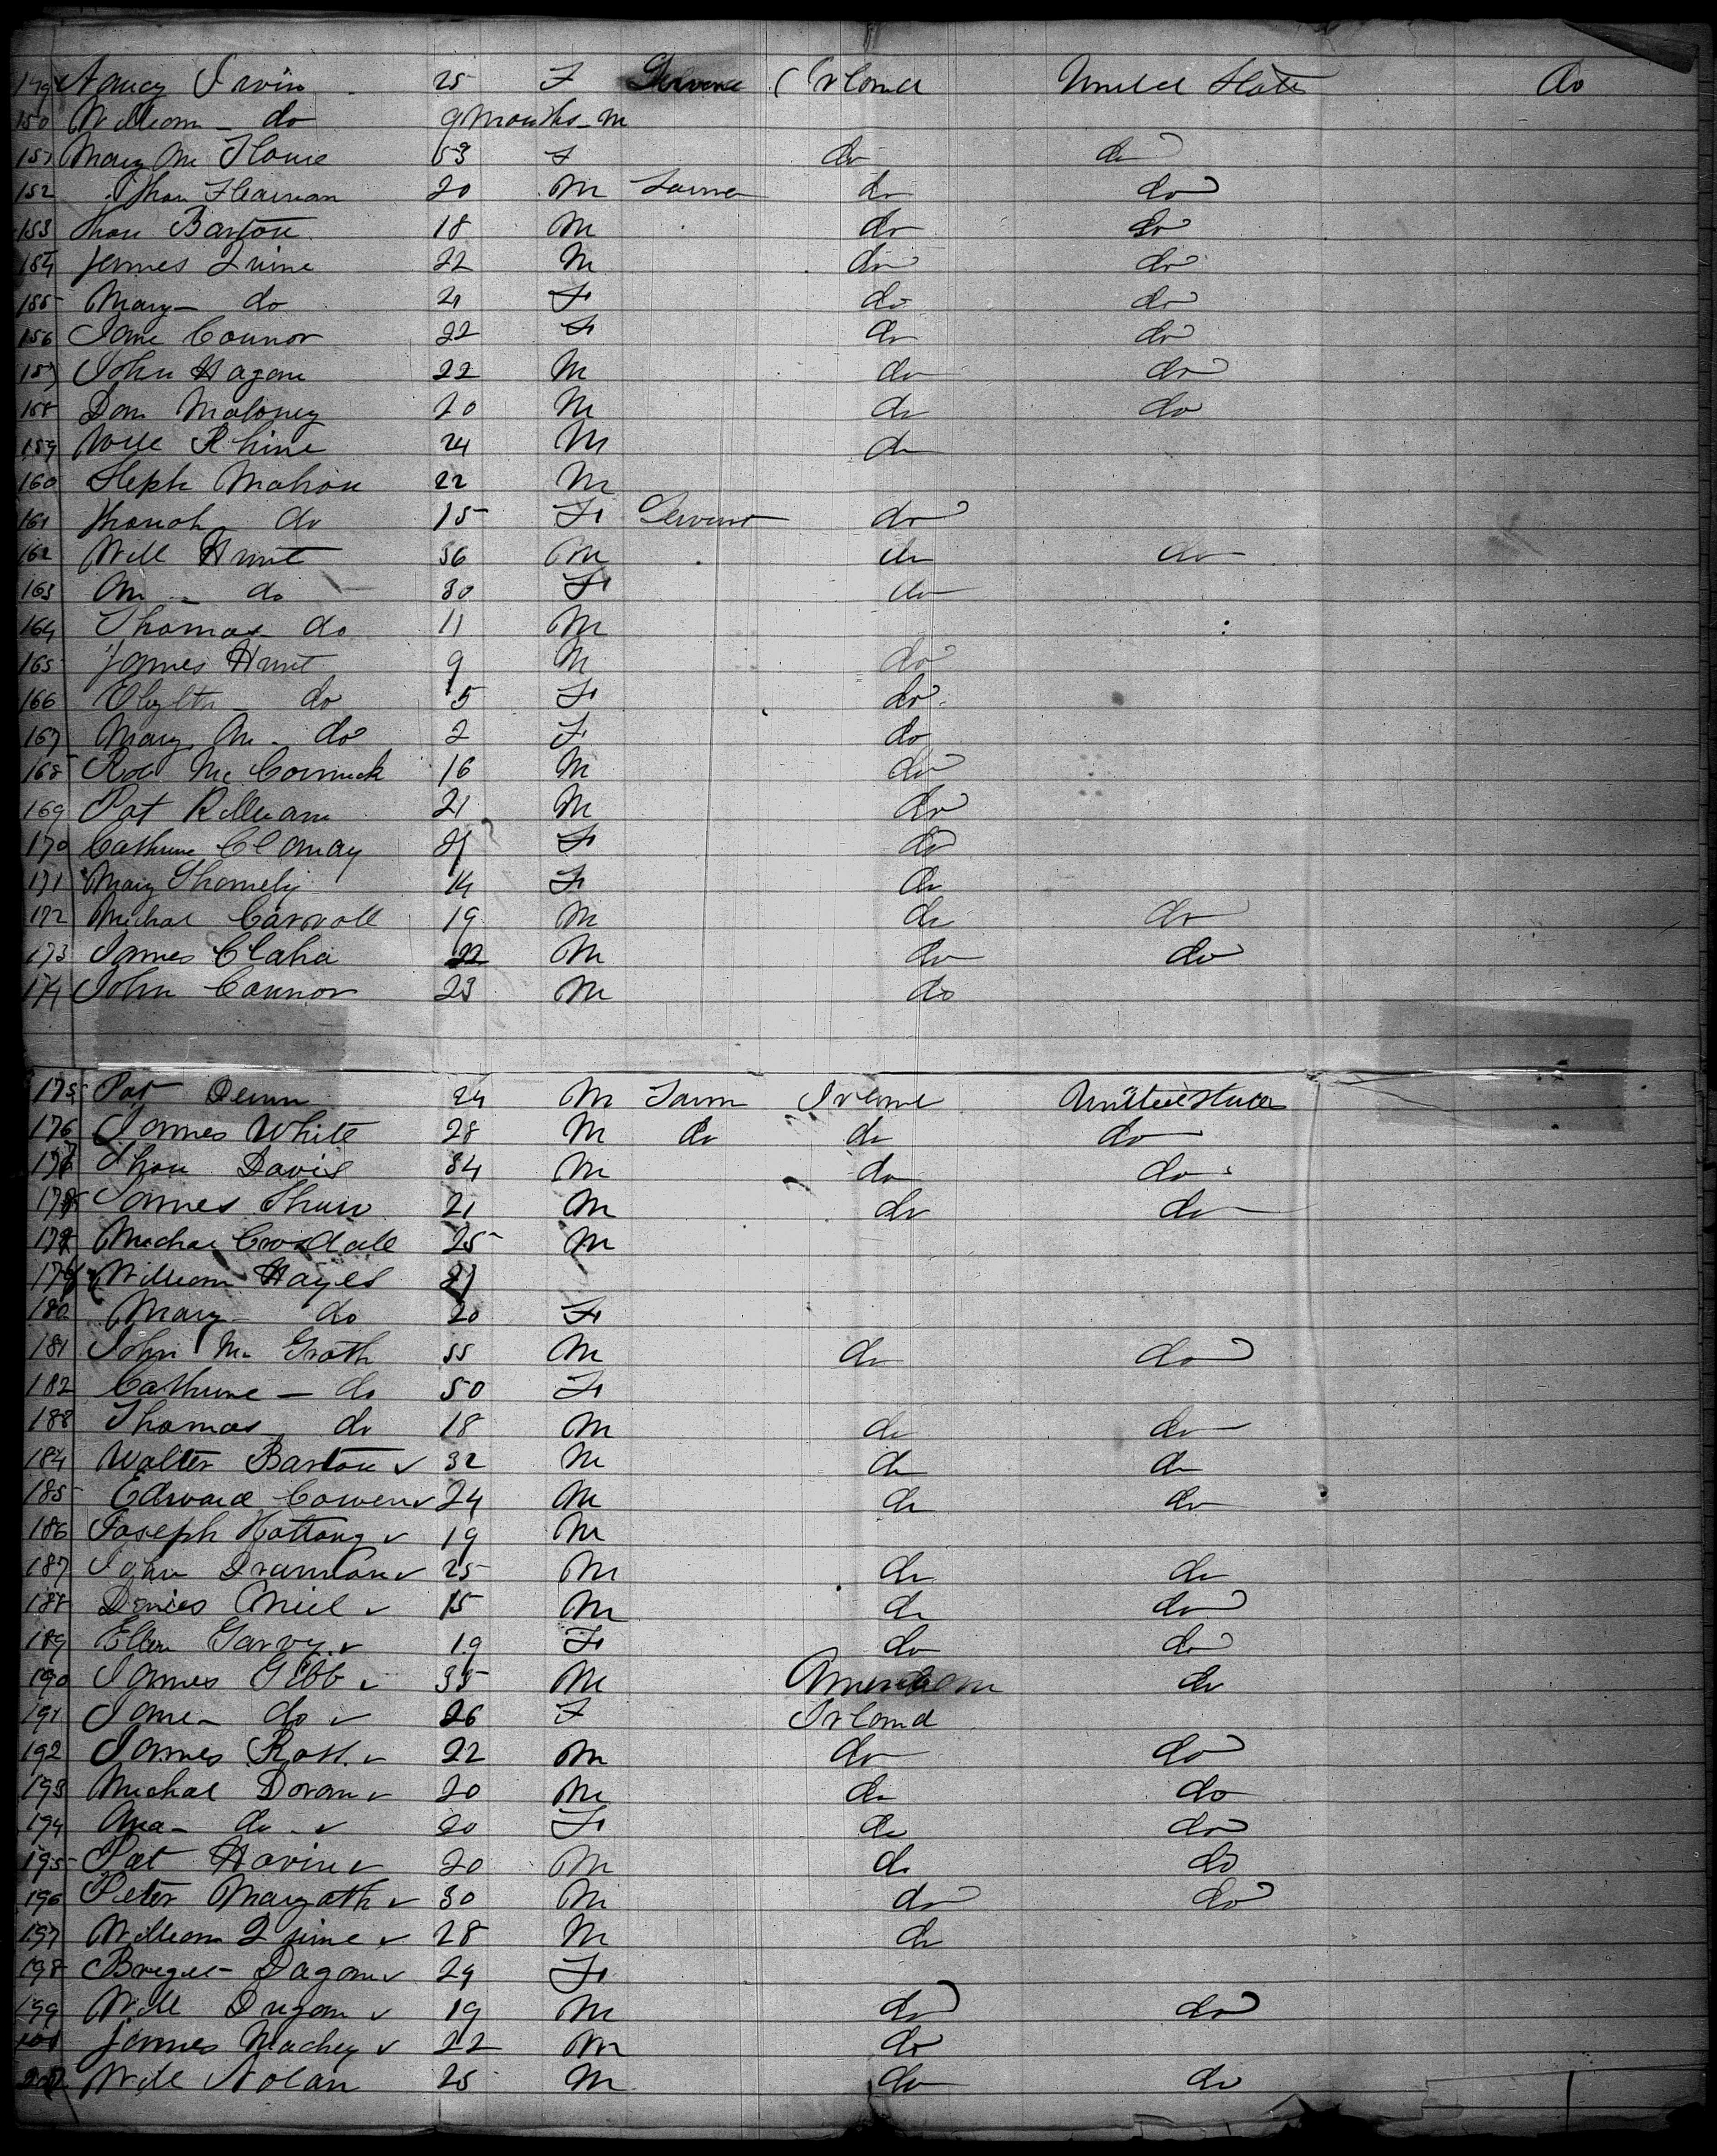 149 Nancy Irvin 25 F Servant Irland United States do
150 William - do 9 months - m
151 Mary Mc 53 F do do
152 Thou 20 M Farmer do do
153 Thou Barton 18 M do do
154 James Quine 22 M do do
155 Mary - do 21 F do do
156 Jane Connor 22 F do do
157 John Hagan 22 M do do
158 Dan Maloney 20 M do do
159 Will Rhine 24 M do
160 Steph Mahon 22 M
161 do 15 F Servant do
162 Will Hunt 36 M do do
163 An - do 30 F do
164 Thomas do 11 M
165 James Hunt 9 M do
166 do 5 F do
167 Mary An - do 2 F do
168 Rob Mc Cormick 16 M do
169 Pat 21 M do
170 Cathrine F do
171 Mary 14 F do
172 Michal Carroll 19 M do do
173 James Claha 22 M do do
174 John Connor 23 M do
175 Pat 24 M Farm Irland United States
176 James White 28 M do do do
177 Thou Davis 34 M do do
178 James 21 M do do
Michal Crosdall 25 M
William Hayes 21
180 Mary - do 20 F
181 John Mc Grath 55 M do do
182 Cathrine - do 50 F
183 Thomas do 18 M do do
184 Walter Barton 32 M do do
185 Edward Cowen 24 M do do
186 Joseph 19 M
187 John 25 M do do
188 15 M do do
189 Ellen Garvy 19 F do do
190 James Gibb 35 M American do
191 Jane - do 26 F Irland
192 James Ross 22 M do do
193 Michal Doran 20 M do do
194 Ana - do - 20 F do do
195 Pat Havin 20 M do do
196 Peter 30 M do do
197 William Quine 28 M do
198 Dagan 24 F
199 Will Dugan 19 M do do
James Machey 22 M do
Will Nolan 25 M do do